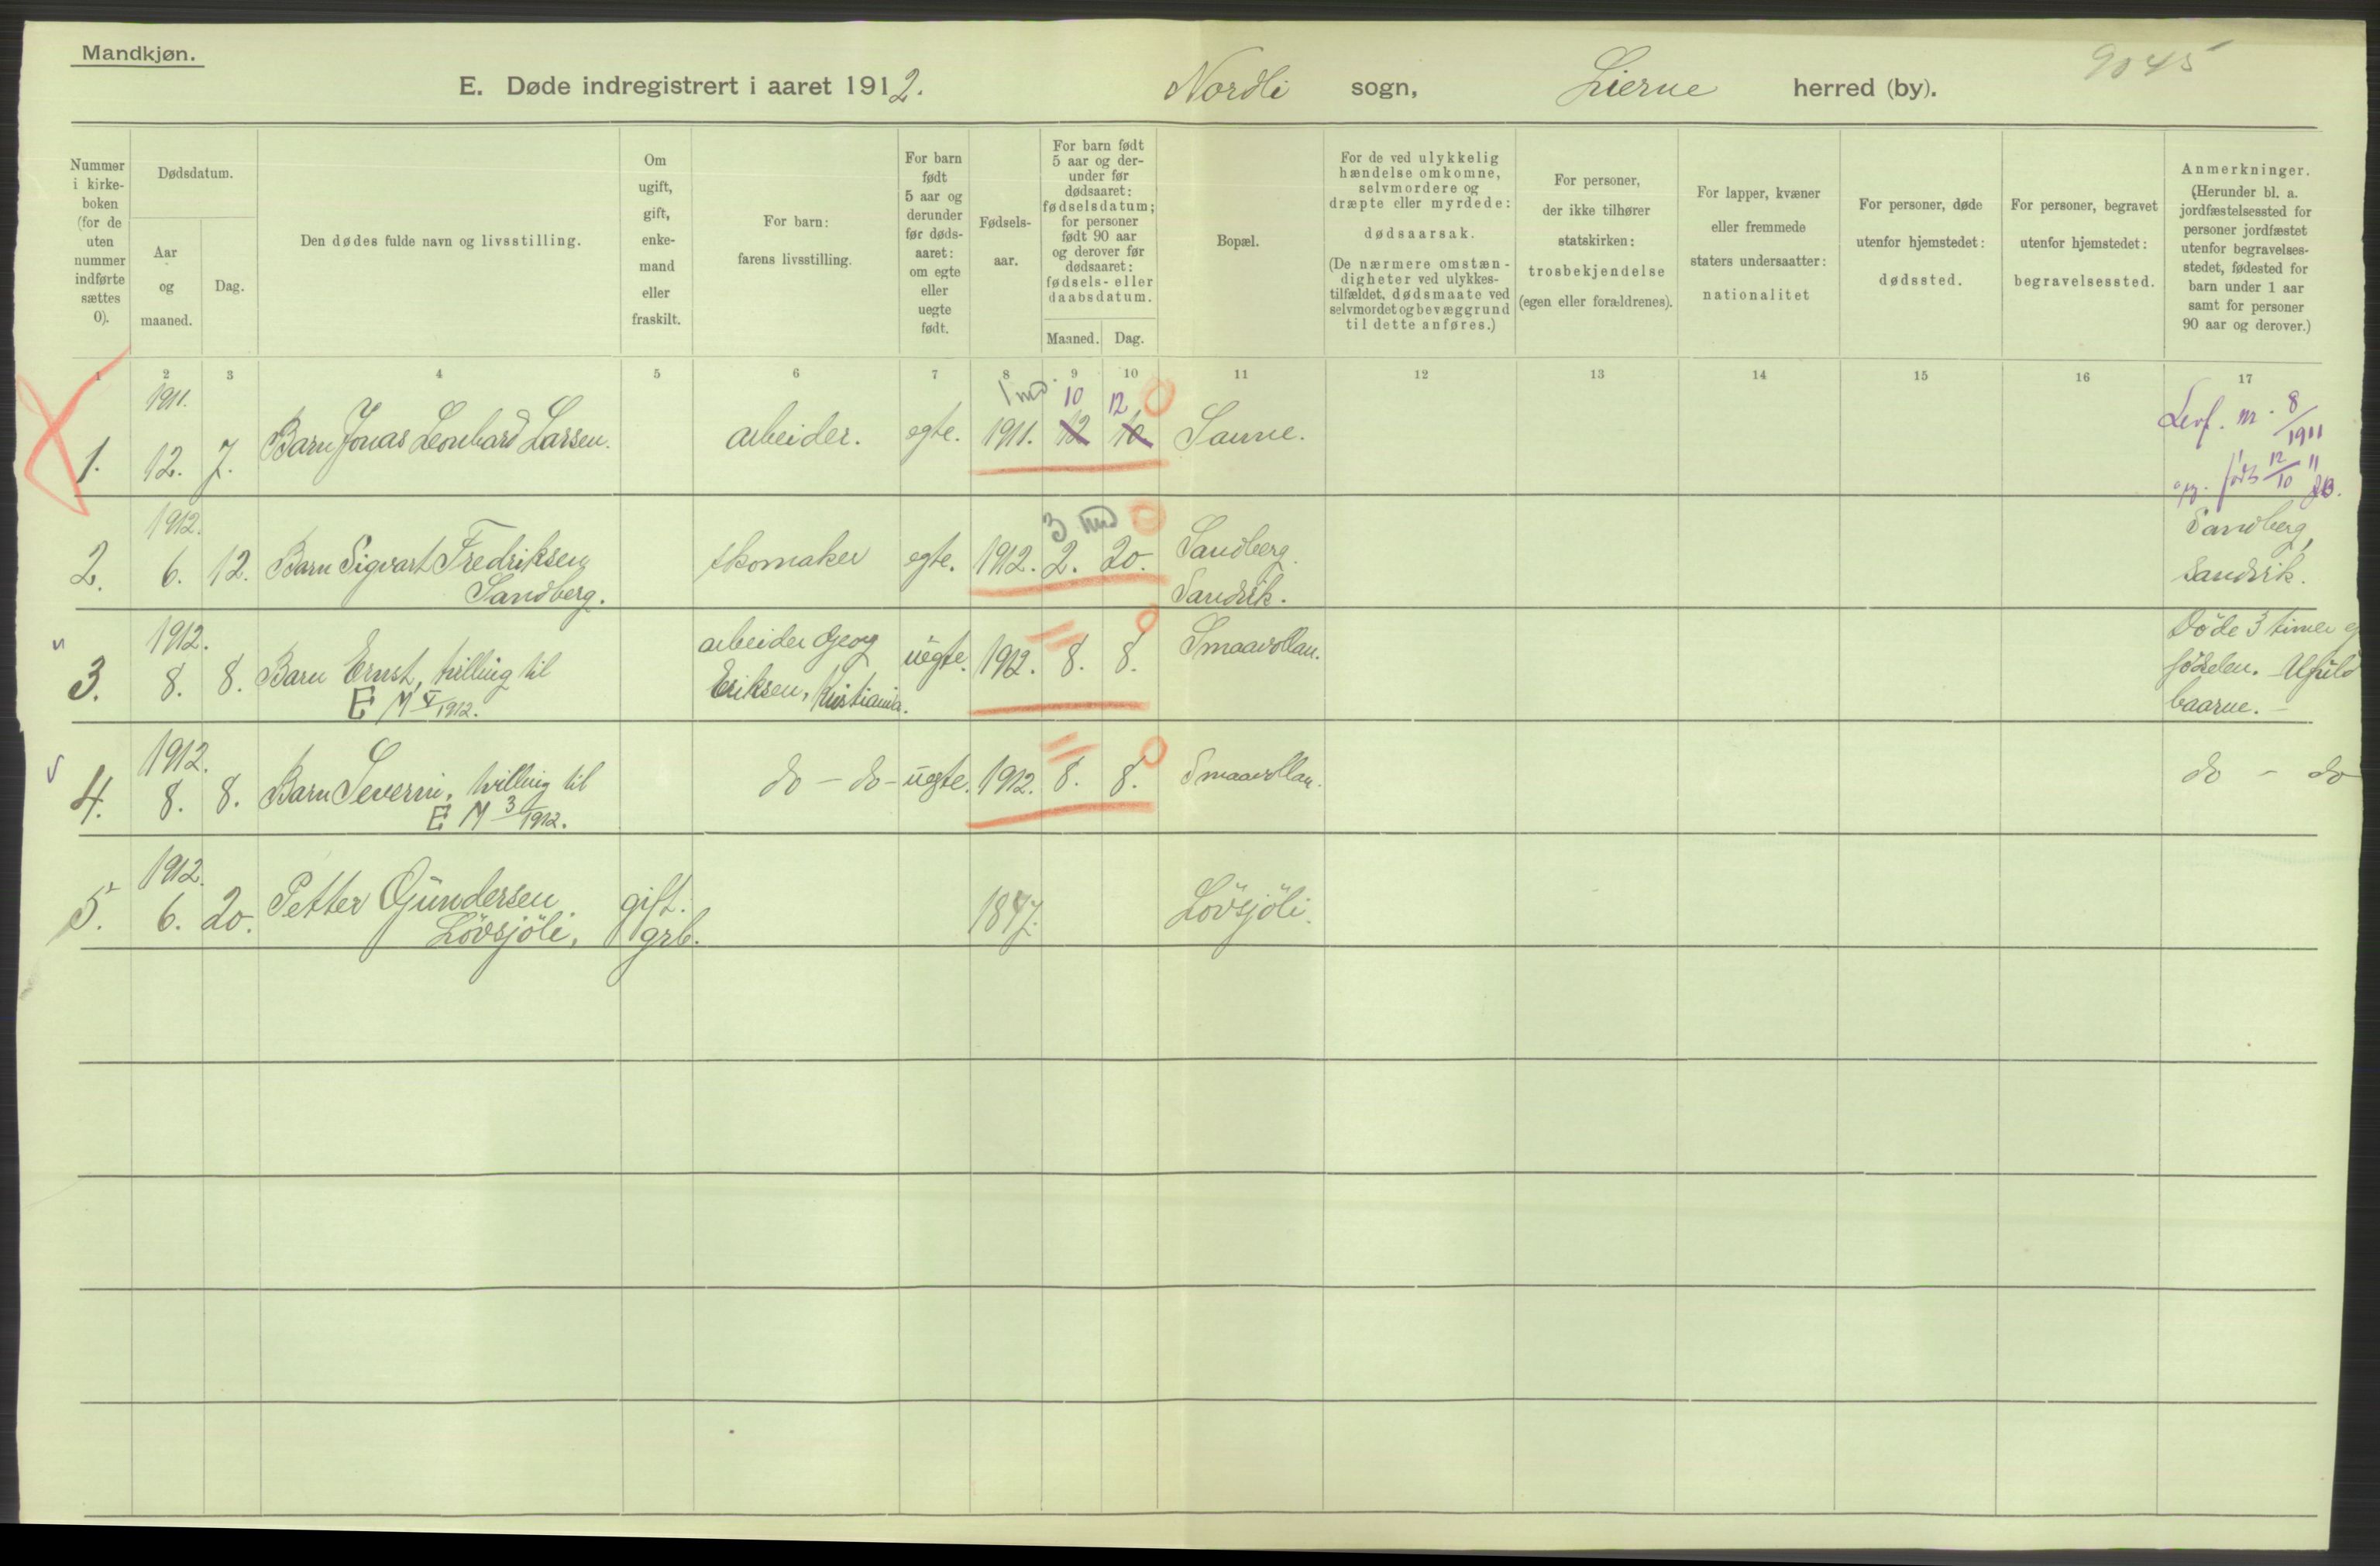 Mandkjøn.
E. Døde indregistrert i aaret 1912. Nordli sogn, Lierne herred (by). 9045
Nummer
i kirke-
boken
(for de
uten
nummer
indførte
sættes
0).
Dødsdatum.
Aar
og
maaned.
Dag.
Den dødes fulde navn og livsstilling.
Om
ugift,
gift,
enke-
mand
eller
fraskilt.
For barn:
farens livsstilling.
For barn
født
5 aar og
derunder
før døds-
aaret:
om egte
eller
uegte
født.
Fødsels-
aar.
For barn født
5 aar og der-
under før
dødsaaret:
fødselsdatum;
for personer
født 90 aar
og derover før
dødsaaret:
fødsels- eller
daabsdatum.
Maaned. Dag.
Bopæl.
For de ved ulykkelig
hændelse omkomne,
selvmordere og
dræpte eller myrdede:
dødsaarsak.
(De nærmere omstæn-
digheter ved ulykkes-
tilfældet, dødsmaate ved
selvmordet og bevæggrund
til dette anføres.)
For personer,
der ikke tilhører
statskirken:
trosbekjendelse
(egen eller forældrenes).
For lapper, kvæner
eller fremmede
staters undersaatter:
nationalitet
For personer, døde
utenfor hjemstedet:
dødssted.
For personer, begravet
utenfor hjemstedet:
begravelsessted.
Anmerkninger.
(Herunder bl. a.
jordfæstelsessted for
personer jordfæstet
utenfor begravelses-
stedet, fødested for
barn under 1 aar
samt for personer
90 aar og derover.)
1 2 3 4 5 6 7 8 9 10 11 12 13 14 15 16 17
1911. 1 md. 10 12
1. 12. 7. Barn Jonas Leonhard Larsen. arbeider. egte. 1911. 12 10 Sanne.
Levf. nr. 8/1911
født 12/10 11
1912. 3 md
2. 6. 12. Barn Sigvart Fredriksen skomaker egte. 1912. 2. 20. Sandberg. Sandberg,
Sandberg. Sandvik. Sandvik.
1912. arbeider Georg Smaavollan. Døde 3 timer e
3. 8. 8. Barn Ernst, tvilling til uegte. 1912. 8. 8. fødselen.
E M V 1912. Eriksen, Kristiania. baarne. –
1912.
4. 8. 8. Barn Severin, tvilling til do – do – uegte. 1912. 8. 8. Smaavollan. do – do
E M 3 1912.
1912.
5. 6. 20. Petter Gundersen gift. 1847. Lövsjöli.
Lövsjöli, grb.